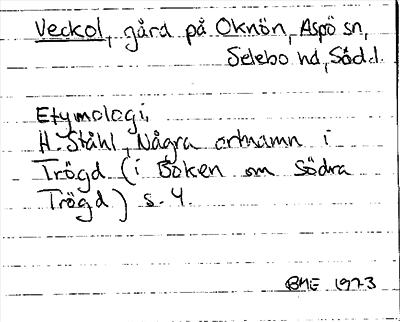 Veckol, gård på Oknön, Aspö sn,
Selebo hd, Södl.
Etymologi.
H. Ståhl, Några ortnamn i
Trögd (i Boken om Södra
Trögd) s. 4.
BME 1973